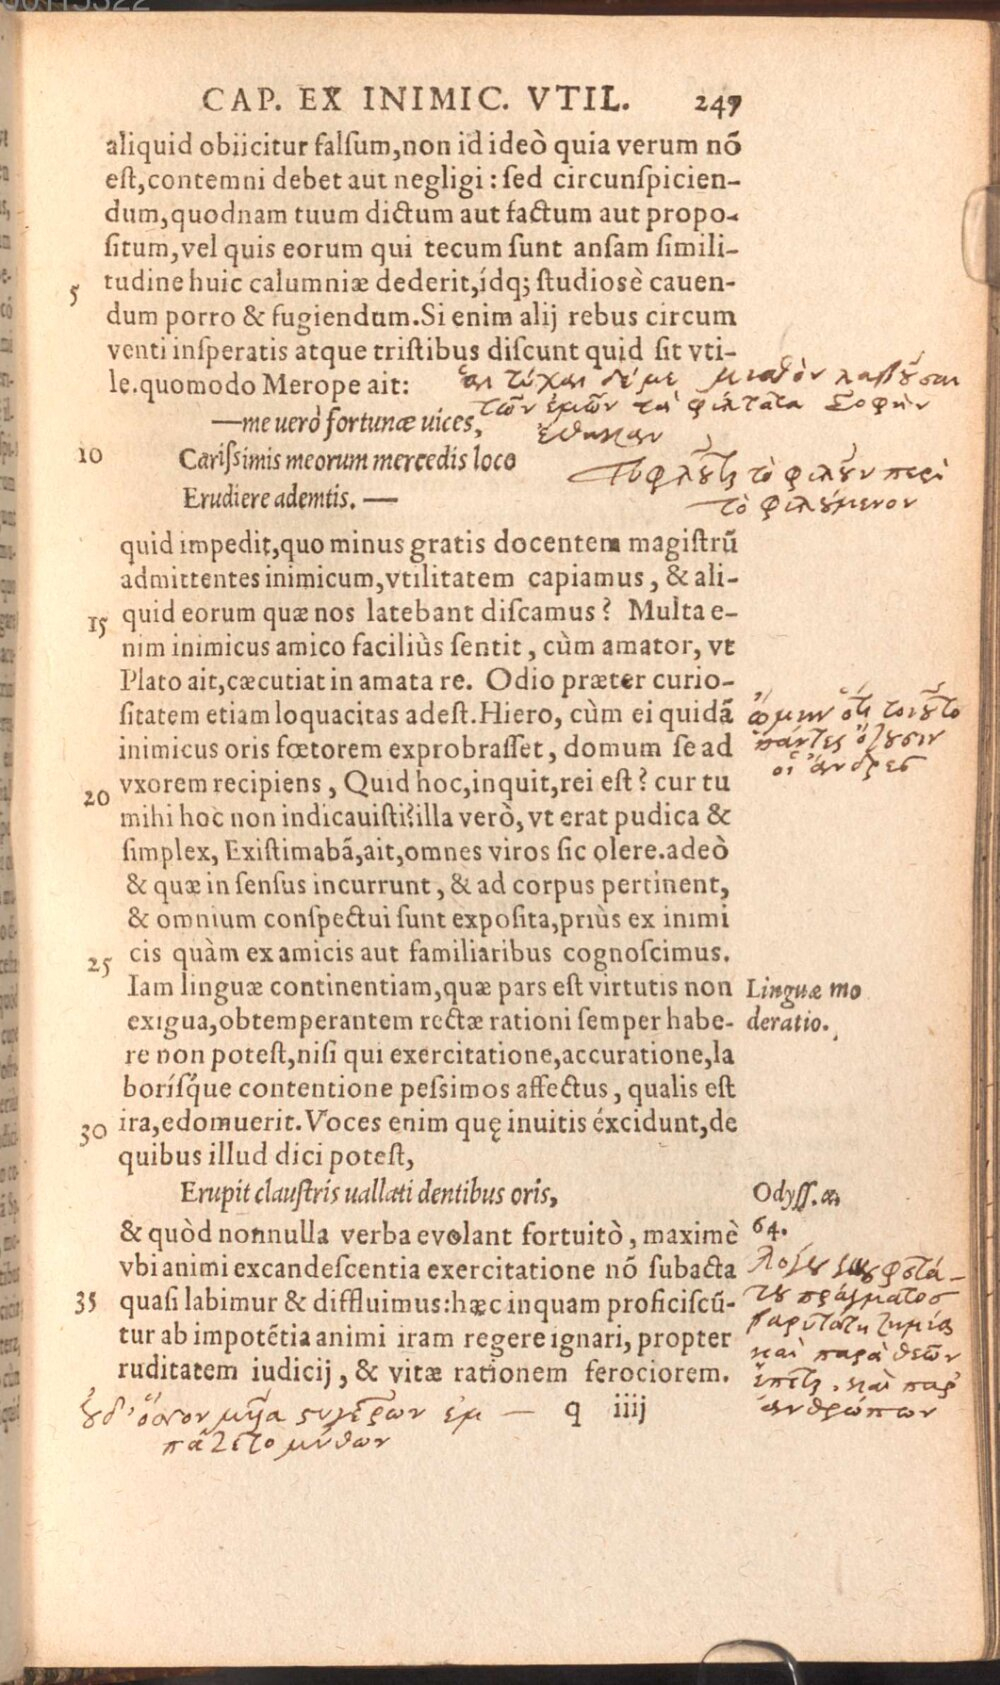 CAP. EX INIMIC. VTIL. 247
aliquid obiicitur falſum, non id ideò quia verum nõ
eſt, contemni debet aut negligi: ſed circunſpicien-
dum, quodnam tuum dictum aut factum aut propo-
ſitum, vel quis eorum qui tecum ſunt anſam ſimili-
5 tudine huic calumniæ dederit, ídq; ſtudiosè cauen-
dum porro & fugiendum. Si enim alij rebus circum
venti inſperatis atque triſtibus diſcunt quid ſit vti-
le. quomodo Merope ait:
αἱ τύχαι δέ με μισθὸν λαβοῦσαι
τῶν ἐμῶν τὰ φίλτατα σοφὴν
ἔθηκαν
—me uerò fortunæ uices,
10 Cariſsimis meorum mercedis loco
Erudiere ademtis. —
τυφλοῦται τὸ φιλοῦν περὶ
τὸ φιλούμενον
quid impedit, quo minus gratis docentem magiſtrũ
admittentes inimicum, vtilitatem capiamus, & ali-
15 quid eorum quæ nos latebant diſcamus? Multa e-
nim inimicus amico faciliùs ſentit, cùm amator, vt
Plato ait, cæcutiat in amata re. Odio præter curio-
ſitatem etiam loquacitas adeſt. Hiero, cùm ei quidã
inimicus oris fœtorem exprobraſſet, domum ſe ad
20 vxorem recipiens, Quid hoc, inquit, rei eſt? cur tu
mihi hoc non indicauiſti? illa verò, vt erat pudica &
ſimplex, Exiſtimabã, ait, omnes viros ſic olere. adeò
ᾤμην ὅτι τοιοῦτο
πάντες ὄζουσιν
οἱ ἄνδρες
& quæ in ſenſus incurrunt, & ad corpus pertinent,
& omnium conſpectui ſunt expoſita, priùs ex inimi
25 cis quàm ex amicis aut familiaribus cognoſcimus.
Iam linguæ continentiam, quæ pars eſt virtutis non
exigua, obtemperantem rectæ rationi ſemper habe-
Linguæ mo
deratio.
re non poteſt, niſi qui exercitatione, accuratione, la
boríſq́ue contentione peſsimos affectus, qualis eſt
30 ira, edomuerit. Voces enim quę inuitis éxcidunt, de
quibus illud dici poteſt,
Erupit clauſtris uallati dentibus oris,
Odyſſ. α,
64.
& quòd nonnulla verba evolant fortuitò, maximè
vbi animi excandeſcentia exercitatione nõ ſubacta
35 quaſi labimur & diffluimus: hæc inquam proficiſcũ-
tur ab impotẽtia animi iram regere ignari, propter
ruditatem iudicij, & vitæ rationem ferociorem.
λόγου κουφοτά-
του πράγματος
βαρυτάτη ζημία
καὶ παρὰ θεῶν
ἕπεται. καὶ παρ'
ἀνθρώπων
q iiij
πάζετο μύθων